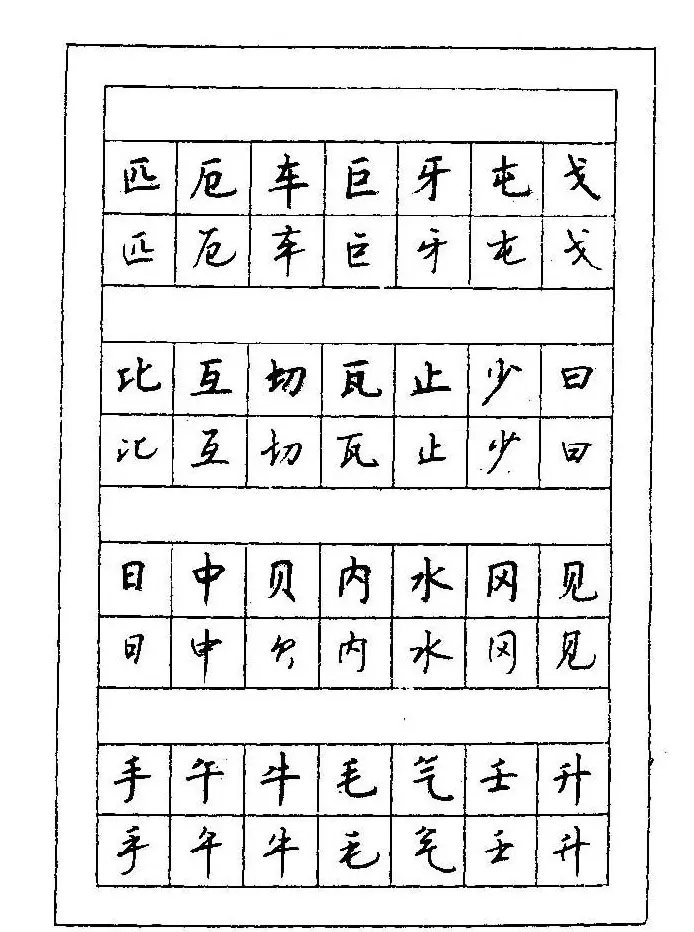 匹 厄 车 巨 牙 屯 戈
匹 厄 车 巨 牙 屯 戈
比 互 切 瓦 止 少 曰
比 互 切 瓦 止 少 曰
日 中 贝 内 水 冈 见
日 中 贝 内 水 冈 见
手 午 牛 毛 气 壬 升
手 午 牛 毛 气 壬 升